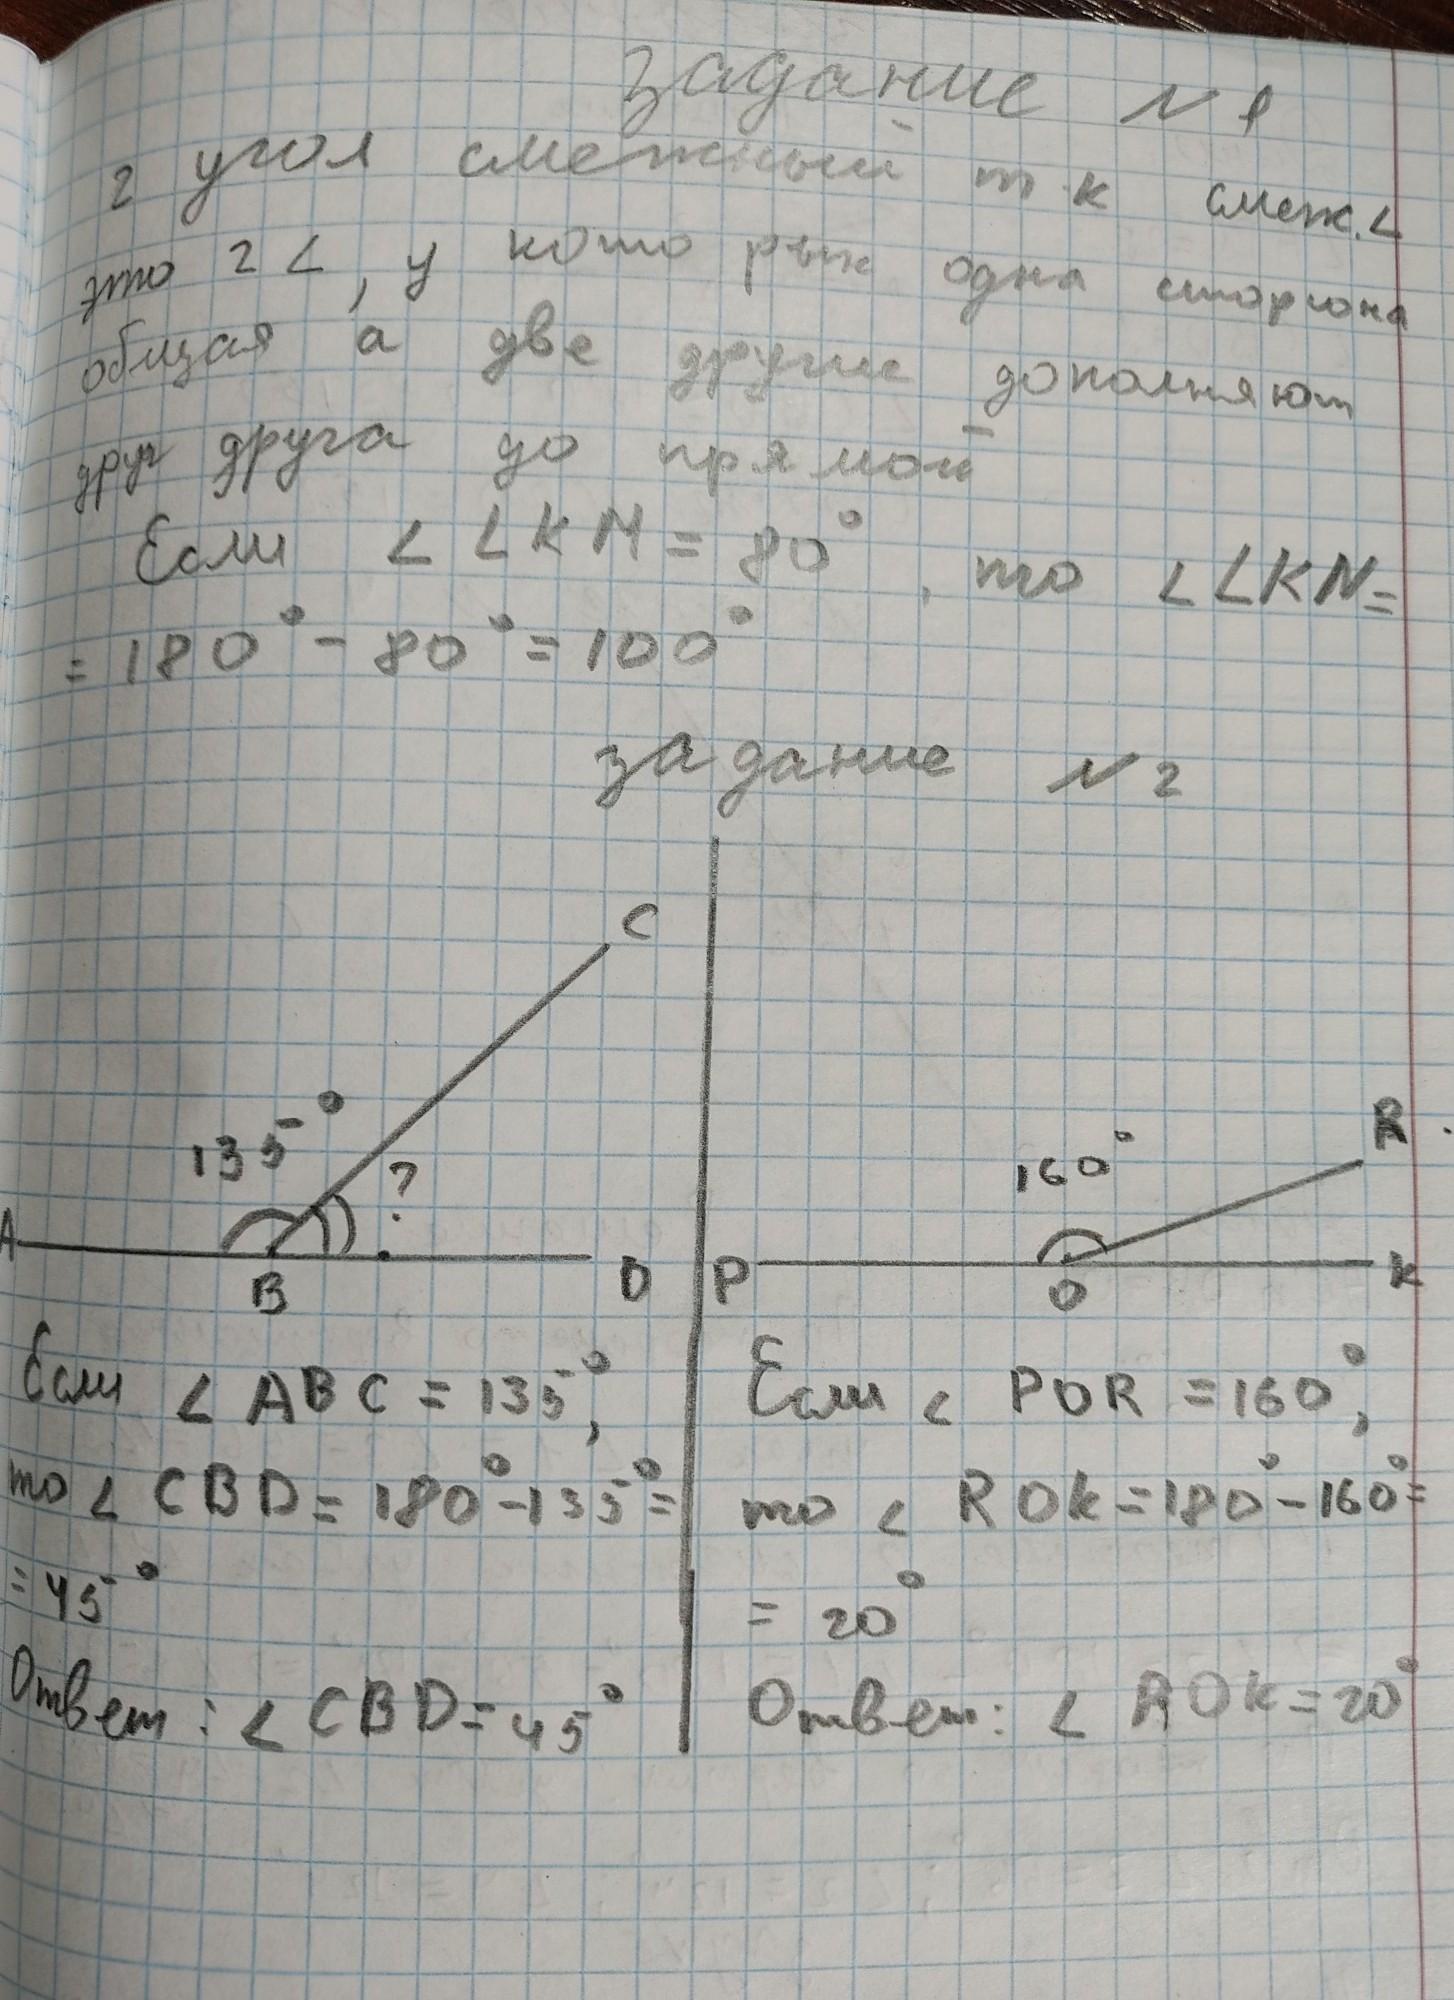 задание № 1
2 угол смежный т.к смеж.∠
это 2 ∠, у которых одна сторона
общая а две другие дополняют
друг друга до прямой
Если ∠ LKM = 80°, то ∠ LKN =
= 180° - 80° = 100°
задание № 2
C
135°
?
A
B
D
160°
R
P
O
K
Если ∠ ABC = 135°,
то ∠ CBD = 180° - 135° =
= 45°
Ответ: ∠ CBD = 45°
Если ∠ POR = 160°,
то ∠ ROK = 180° - 160° =
= 20°
Ответ: ∠ ROK = 20°